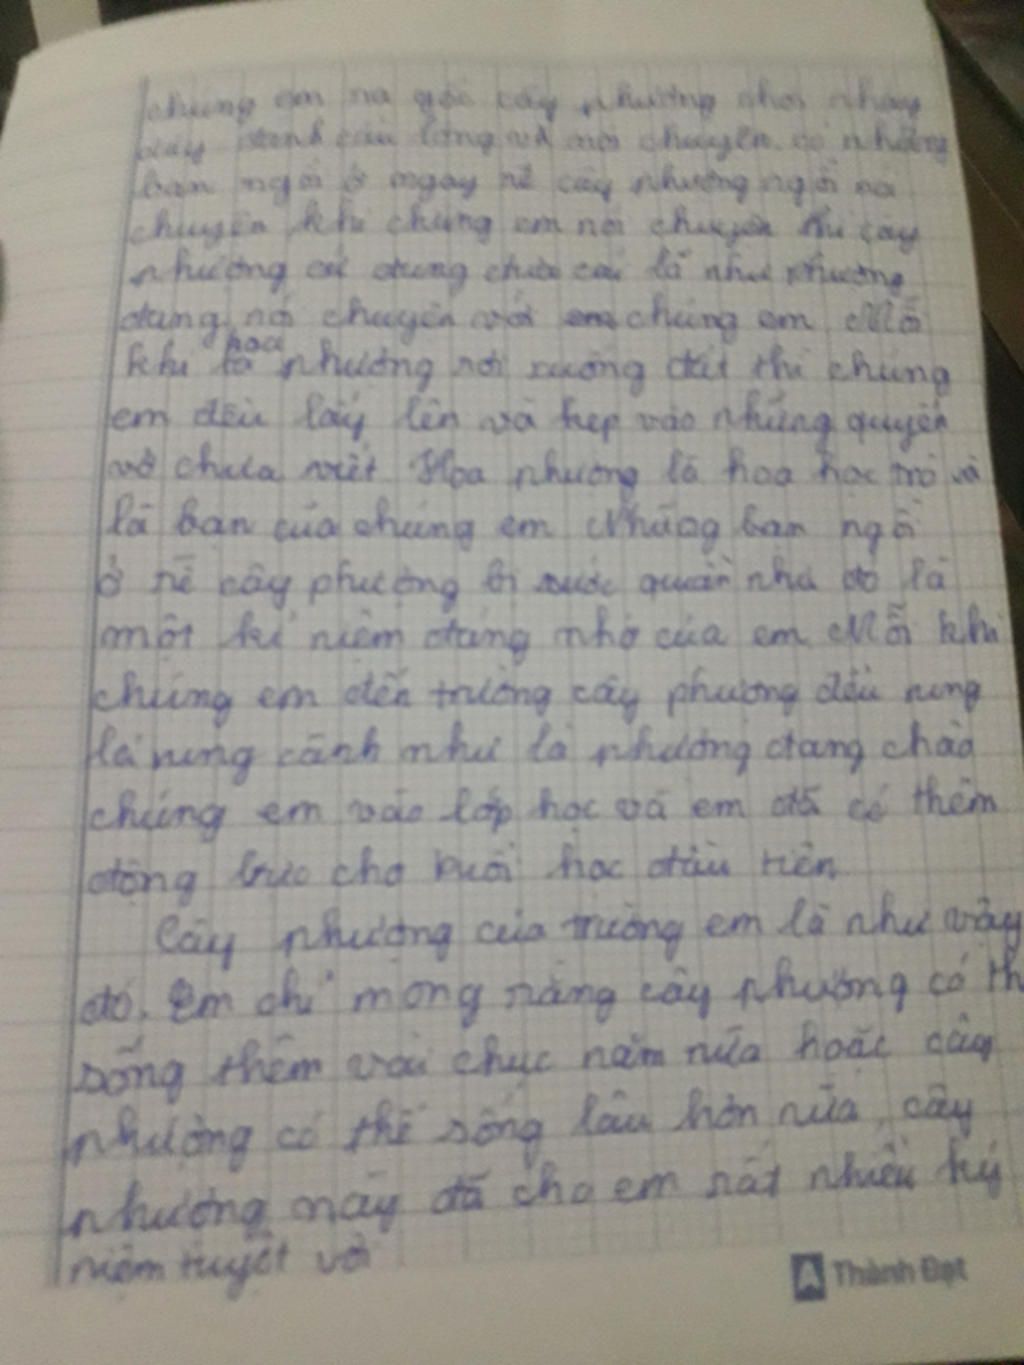 chúng em ra gốc cây phượng chơi nhảy
dây đánh cầu lông và nói chuyện có những
bạn ngồi ở ngay rễ cây phượng ngồi nói
chuyện khi chúng em nói chuyện thì cây
phượng cứ đung đưa cái lá như phượng
đang nói chuyện với chúng em Mỗi
khi hoa phượng rơi xuống đất thì chúng
em đều lấy lên và kẹp vào những quyển
vở chưa viết Hoa phượng là hoa học trò và
là bạn của chúng em Những bạn ngồi
ở rễ cây phượng bị xước quần nhưng đó là
một kỉ niệm đáng nhớ của em Mỗi khi
chúng em đến trường cây phượng đều rung
lá rung cành như là phượng đang chào
chúng em vào lớp học và em đã có thêm
động lực cho buổi học đầu tiên
Cây phượng của trường em là như vậy
đó. Em chỉ mong rằng cây phượng có th
sống thêm vài chục năm nữa hoặc cây
phượng có thể sống lâu hơn nữa, cây
phượng này đã cho em rất nhiều ký
niệm tuyệt vời
Thành Đạt